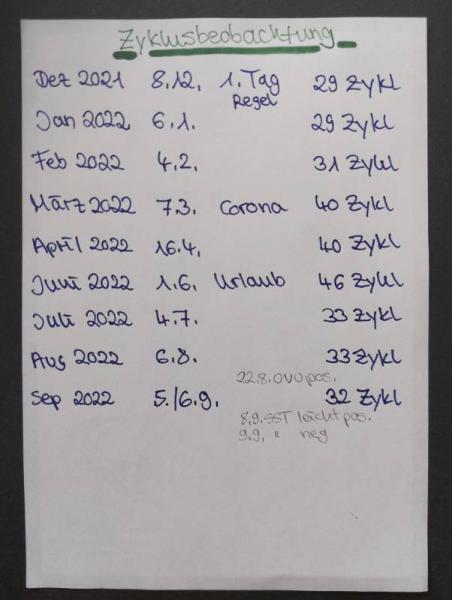 Zyklusbeobachtung
Dez 2021 8.12. 1. Tag Regel 29 Zykl
Jan 2022 6.1. 29 Zykl
Feb 2022 4.2. 31 Zykl
März 2022 7.3. Corona 40 Zykl
April 2022 16.4. 40 Zykl
Juni 2022 1.6. Urlaub 46 Zykl
Juli 2022 4.7. 33 Zykl
Aug 2022 6.8. 33 Zykl
22.8. OVU pos.
Sep 2022 5./6.9. 32 Zykl
8.9. SST leicht pos.
9.9. " neg